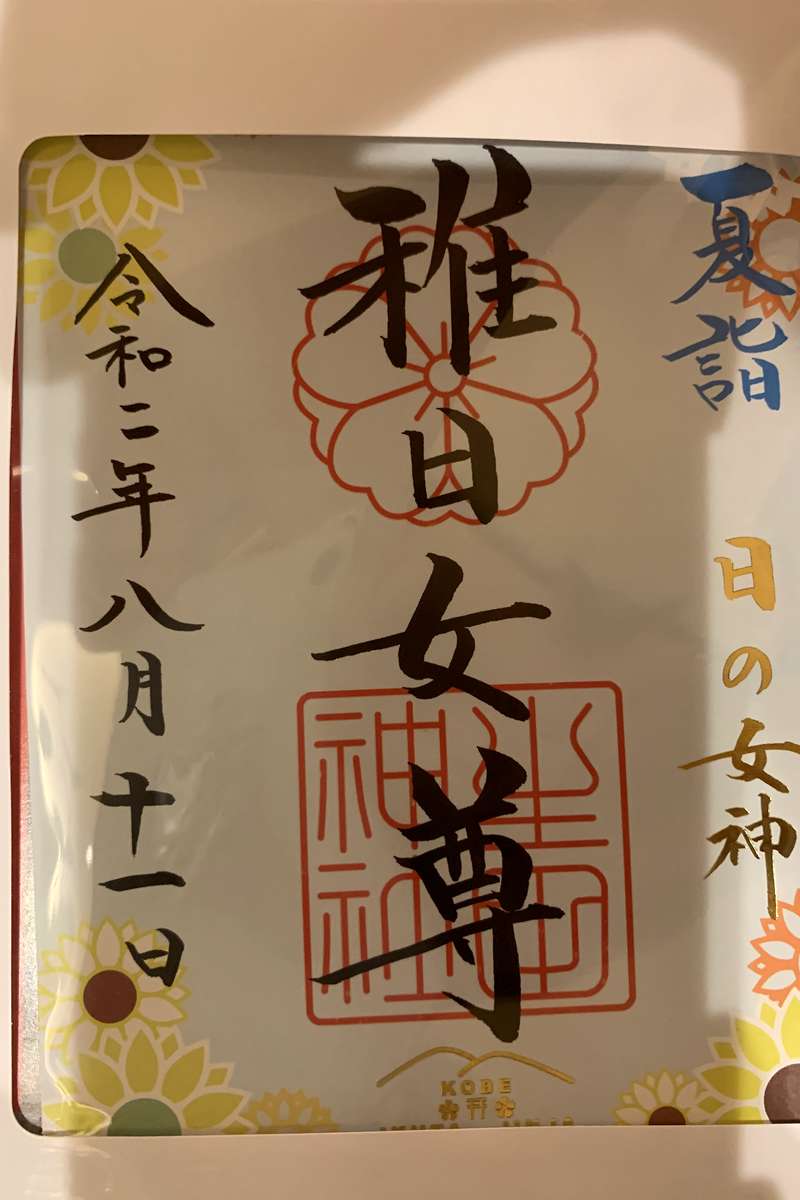 夏詣
日の女神
稚日女尊
生田神社
令和二年八月十一日
KOBE